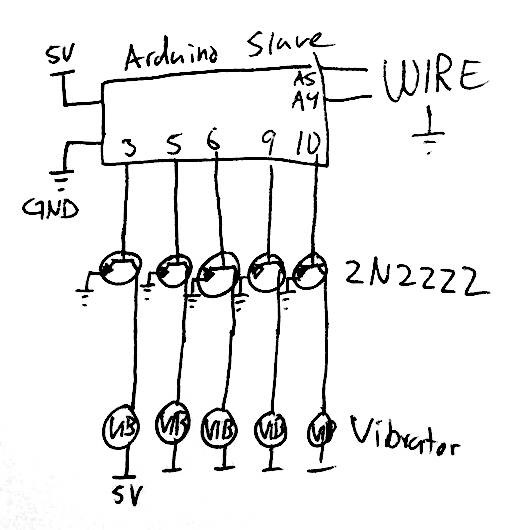 5V
Arduino Slave
A5
A4
WIRE
3 5 6 9 10
GND
2N2222
VIB VIB VIB VIB VIB
Vibrator
5V